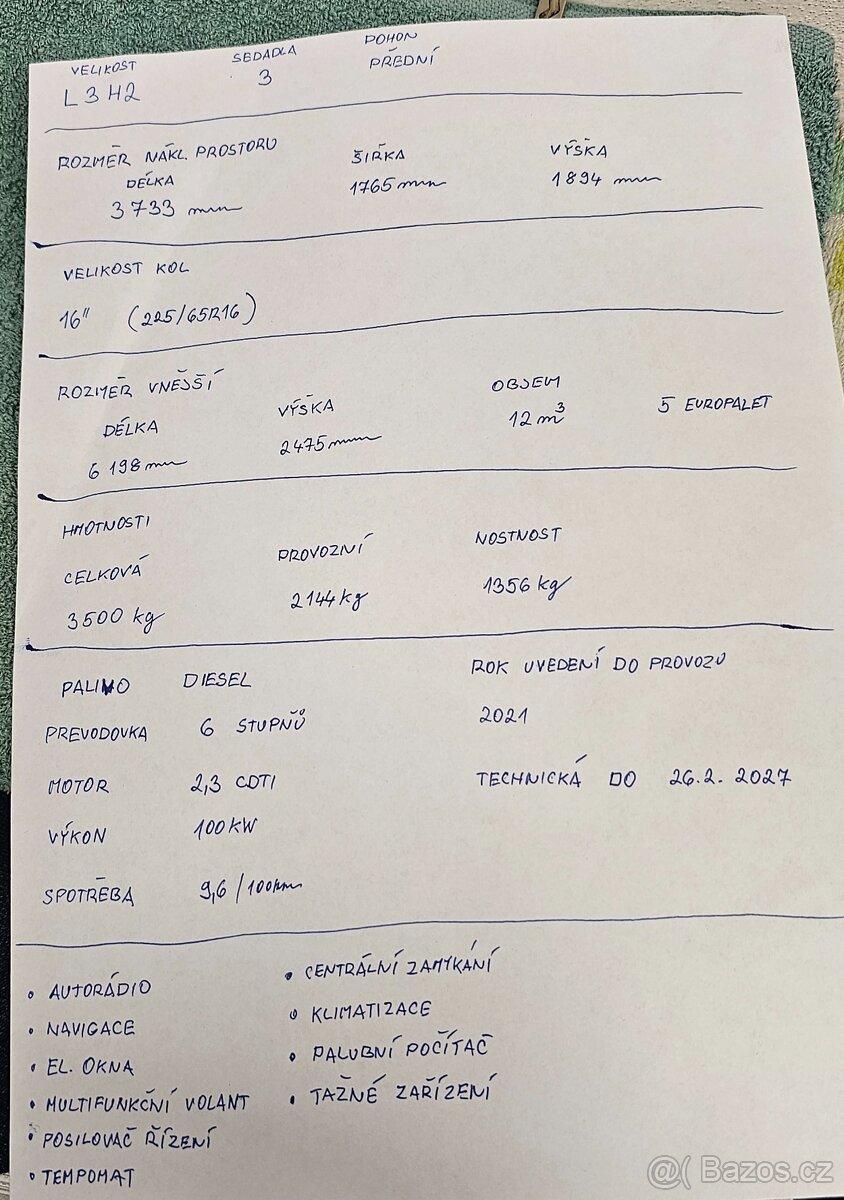 VELIKOST SEDADLA POHON
L3H2 3 PŘEDNÍ
ROZMĚR NÁKL. PROSTORU ŠIŘKA VÝŠKA
DÉLKA 1765 mm 1894 mm
3733 mm
VELIKOST KOL
16" (225/65R16)
ROZMĚR VNĚJŠÍ VÝŠKA OBJEM 5 EUROPALET
DÉLKA 2475 mm 12 m³
6198 mm
HMOTNOSTI
CELKOVÁ PROVOZNÍ NOSTNOST
3500 kg 2144 kg 1356 kg
PALIVO DIESEL ROK UVEDENÍ DO PROVOZU
PREVODOVKA 6 STUPŇŮ 2021
MOTOR 2,3 CDTI TECHNICKÁ DO 26.2. 2027
VÝKON 100 KW
SPOTŘEBA 9,6 / 100km
• AUTORÁDIO • CENTRÁLNÍ ZAMYKÁNÍ
• NAVIGACE • KLIMATIZACE
• EL. OKNA • PALUBNÍ POČÍTAČ
• MULTIFUNKČNÍ VOLANT • TAŽNÉ ZAŘÍZENÍ
• POSILOVAČ ŘÍZENÍ
• TEMPOMAT
@( Bazos.cz